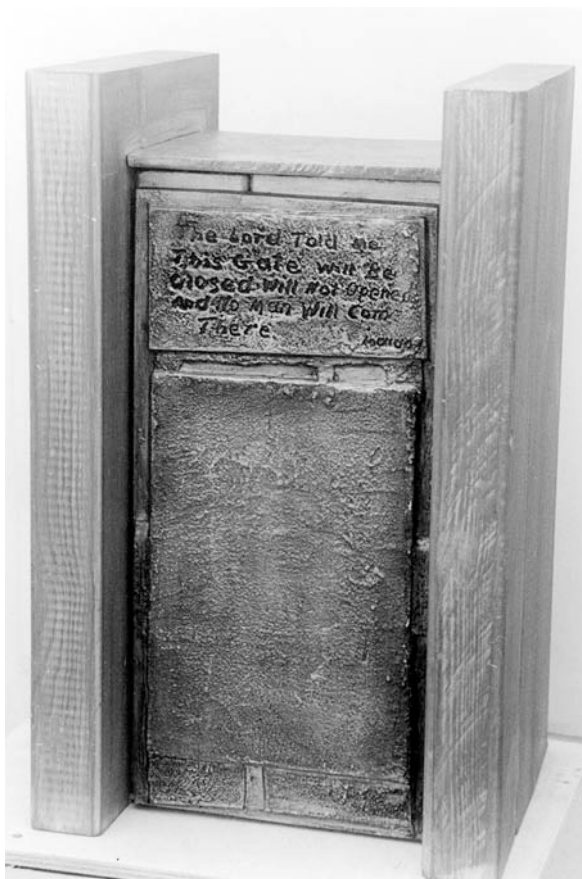 The Lord Told me
This Gate will Be
Closed Will Not Opened
And No Man Will Com
There